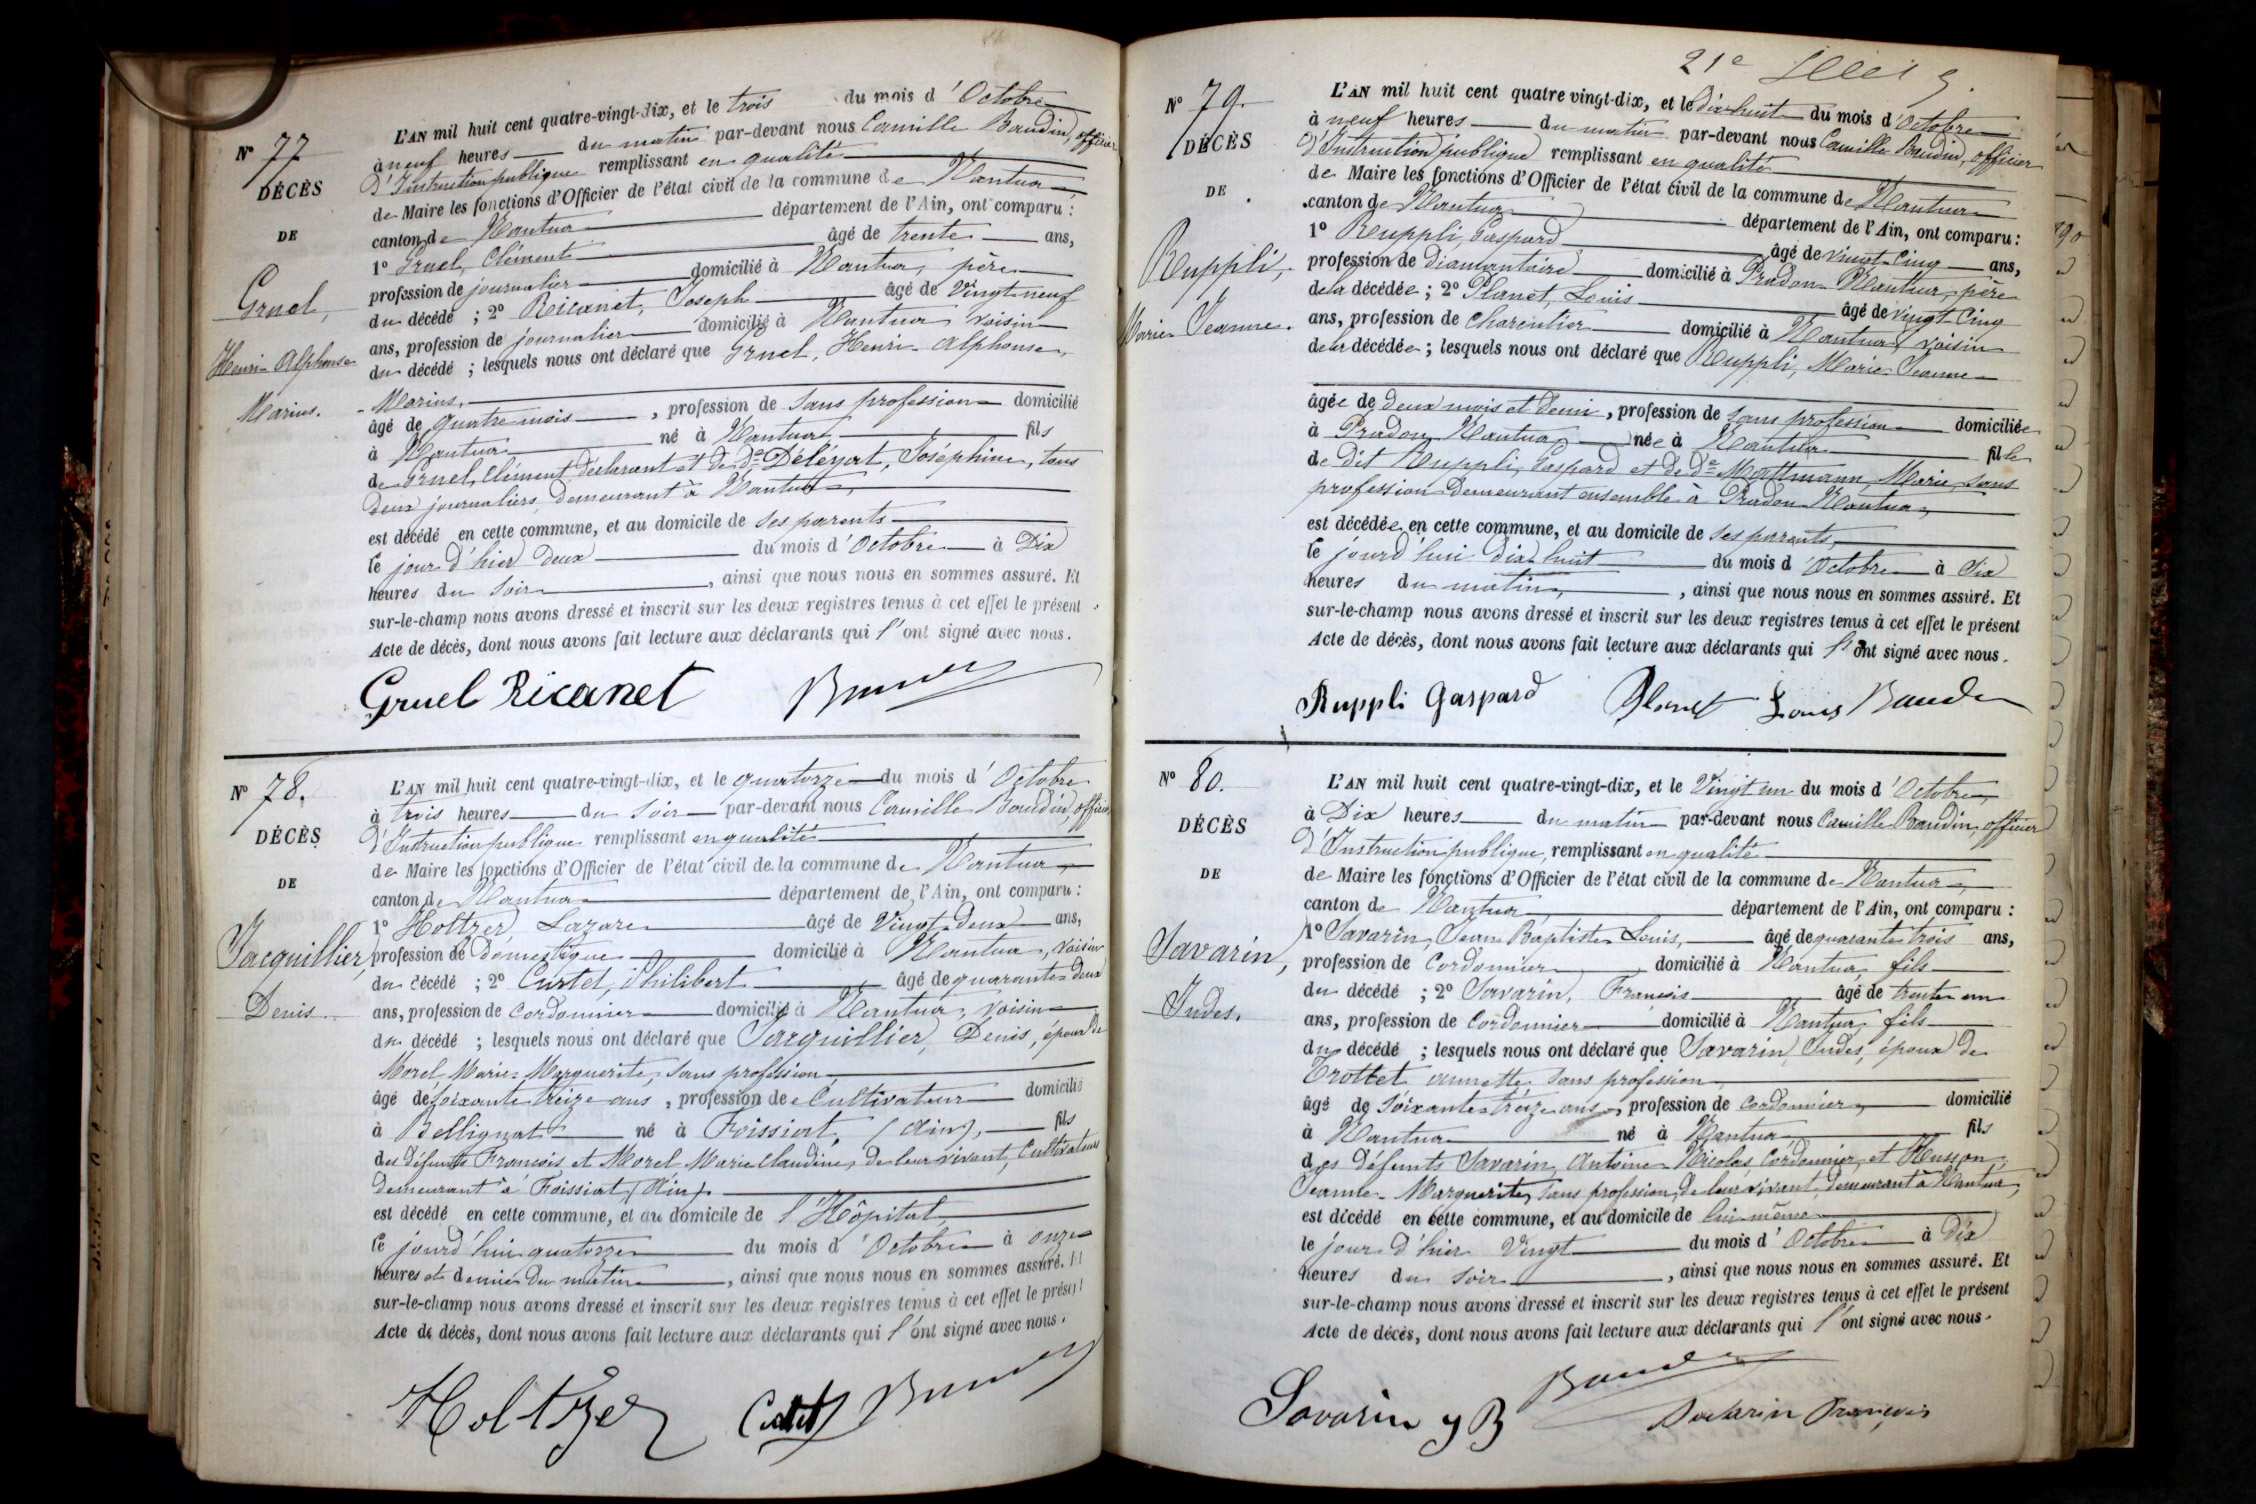 Nº 77
DÉCÈS
DE
Gruel,
Henri-Alphonse
Marius.
L'AN mil huit cent quatre-vingt-dix, et le trois du mois d'Octobre
à neuf heures du matin par-devant nous Camille Baudin, officier
d'Instruction publique remplissant en qualité
de Maire les fonctions d'Officier de l'état civil de la commune de Nantua
canton de Nantua département de l'Ain, ont comparu :
1º Gruel, Clément âgé de trente ans,
profession de journalier domicilié à Nantua, père
du décédé ; 2º Ricanet, Joseph âgé de Vingt-neuf
ans, profession de journalier domicilié à Nantua voisin
du décédé ; lesquels nous ont déclaré que Gruel, Henri-Alphonse,
-Marius,
âgé de quatre mois, profession de sans profession domicilié
à Nantua né à Nantua fils
de Gruel, Clément déclarant et de dº Déléyat, Joséphine, tous
deux journaliers, demeurant à Nantua
est décédé en cette commune, et au domicile de ses parents
le jour d'hier Deux du mois d'Octobre à Dix
heures du soir, ainsi que nous nous en sommes assuré. Et
sur-le-champ nous avons dressé et inscrit sur les deux registres tenus à cet effet le présent
Acte de décès, dont nous avons fait lecture aux déclarants qui l'ont signé avec nous.
Gruel Ricanet
Nº 78.
DÉCÈS
DE
Jacquillier,
Denis
L'AN mil huit cent quatre-vingt-dix, et le quatorze du mois d'Octobre
à trois heures du soir par-devant nous Camille Baudin, officier
d'Instruction publique remplissant en qualité
de Maire les fonctions d'Officier de l'état civil de la commune de Nantua
canton de Nantua département de l'Ain, ont comparu :
1º Holtzer, Lazare âgé de Vingt-deux ans,
profession de domestique domicilié à Nantua, voisin
du décédé ; 2º Curtet, Philibert âgé de quarante-deux
ans, profession de Cordonnier domicilié à Nantua, voisin
du décédé ; lesquels nous ont déclaré que Jacquillier, Denis, époux de
Morel Marie-Marguerite, sans profession
âgé de soixante treize ans, profession de Cultivateur domicilié
à Bellignat né à Foissiat, (Ain), fils
des défunts François et Morel Marie Claudine, de leur vivant, Cultivateurs
demeurant à Foissiat (Ain)
est décédé en cette commune, et au domicile de l'Hôpital
le jourd'hui quatorze du mois d'Octobre à onze
heures et demie du matin, ainsi que nous nous en sommes assuré. Et
sur-le-champ nous avons dressé et inscrit sur les deux registres tenus à cet effet le présent
Acte de décès, dont nous avons fait lecture aux déclarants qui l'ont signé avec nous.
Holtzer
21e
Nº 79.
DÉCÈS
DE
Ruppli,
Marie Jeanne.
L'AN mil huit cent quatre vingt-dix, et le dix-huit du mois d'Octobre
à neuf heures du matin par-devant nous Camille Baudin, officier
d'Instruction publique remplissant en qualité
de Maire les fonctions d'Officier de l'état civil de la commune de Nantua
canton de Nantua département de l'Ain, ont comparu :
1º Ruppli, Gaspard âgé de vingt-cinq ans,
profession de diamantaire domicilié à Pradon Nantua, père
de la décédée ; 2º Planet, Louis âgé de vingt-cinq
ans, profession de Charcutier domicilié à Nantua, voisin
de la décédée ; lesquels nous ont déclaré que Ruppli, Marie-Jeanne
âgée de deux mois et demi, profession de sans profession domiciliée
à Pradon Nantua, née à Nantua fille
de dit Ruppli, Gaspard et de de Mattmann, Marie, sans
profession demeurant ensemble à Pradon Nantua,
est décédée en cette commune, et au domicile de ses parents,
le jourd'hui dix-huit du mois d'Octobre à Six
heures du matin, ainsi que nous nous en sommes assuré. Et
sur-le-champ nous avons dressé et inscrit sur les deux registres tenus à cet effet le présent
Acte de décès, dont nous avons fait lecture aux déclarants qui l'ont signé avec nous.
Ruppli Gaspard Planet Louis Baudin
Nº 80.
DÉCÈS
DE
Savarin,
Judes.
L'AN mil huit cent quatre-vingt-dix, et le Vingt un du mois d'Octobre,
à Dix heures du matin par-devant nous Camille Baudin officier
d'Instruction publique, remplissant en qualité
de Maire les fonctions d'Officier de l'état civil de la commune de Nantua,
canton de Nantua département de l'Ain, ont comparu :
1º Savarin, Jean Baptiste Louis, âgé de quarante trois ans,
profession de Cordonnier domicilié à Nantua, fils
du décédé ; 2º Savarin, François âgé de trente un
ans, profession de Cordonnier domicilié à Nantua, fils
du décédé ; lesquels nous ont déclaré que Savarin, Judes, époux de
Trottet annette sans profession
âgé de soixante-treize ans, profession de cordonnier, domicilié
à Nantua né à Nantua fils
des défunts Savarin, Antoine Nicolas Cordonnier, et Husson,
Jeanne-Marguerite, sans profession, de leur vivant demeurant à Nantua,
est décédé en cette commune, et au domicile de lui-même
le jour d'hier Vingt du mois d'Octobre à Dix
heures du soir, ainsi que nous nous en sommes assuré. Et
sur-le-champ nous avons dressé et inscrit sur les deux registres tenus à cet effet le présent
Acte de décès, dont nous avons fait lecture aux déclarants qui l'ont signé avec nous.
Savarin J B Savarin François